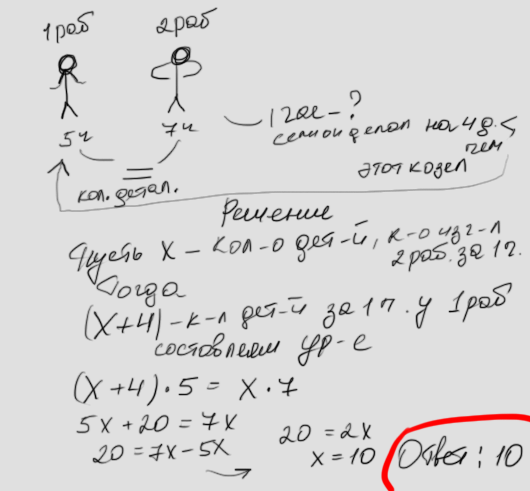 1 раб 2 раб
5ч 7ч
1 час - ?
если он делал на 4 д. < чем
этот козел
кол. детал.
Решение
Пусть X - кол-о дет-й, к-о изг-л
2 раб. за 1 ч.
Тогда
(X+4) - к-л дет-й за 1 ч. у 1 раб
составляем ур-е
(X+4)·5 = X·7
5X+20 = 7X
20 = 7X-5X
20 = 2X
X = 10
Ответ: 10